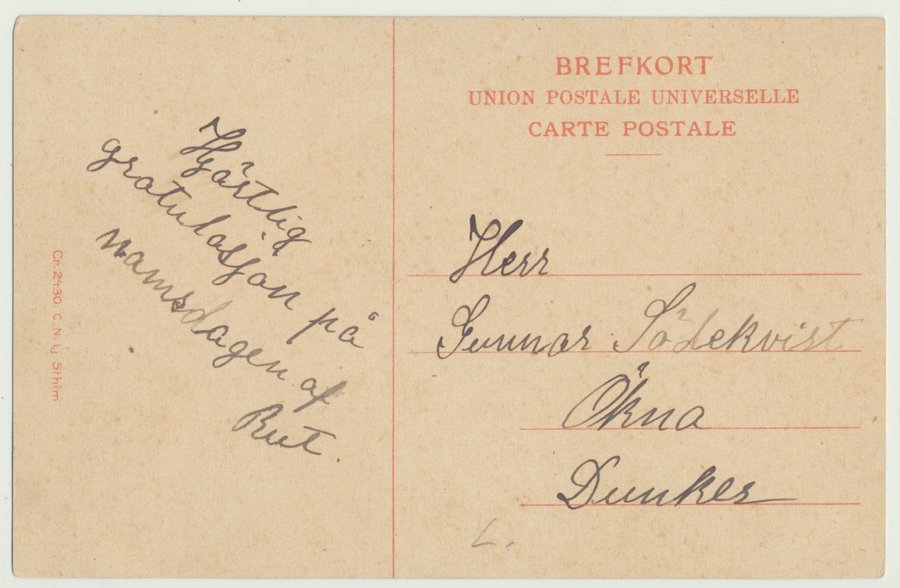 BREFKORT
UNION POSTALE UNIVERSELLE
CARTE POSTALE
Hjärtlig
gratulasjon på
namsdagen af
Rut.
Herr
Gunnar Södekvist
Ökna
Dunker
L.
Cn. 2430. C. N:s Lj. Sthlm